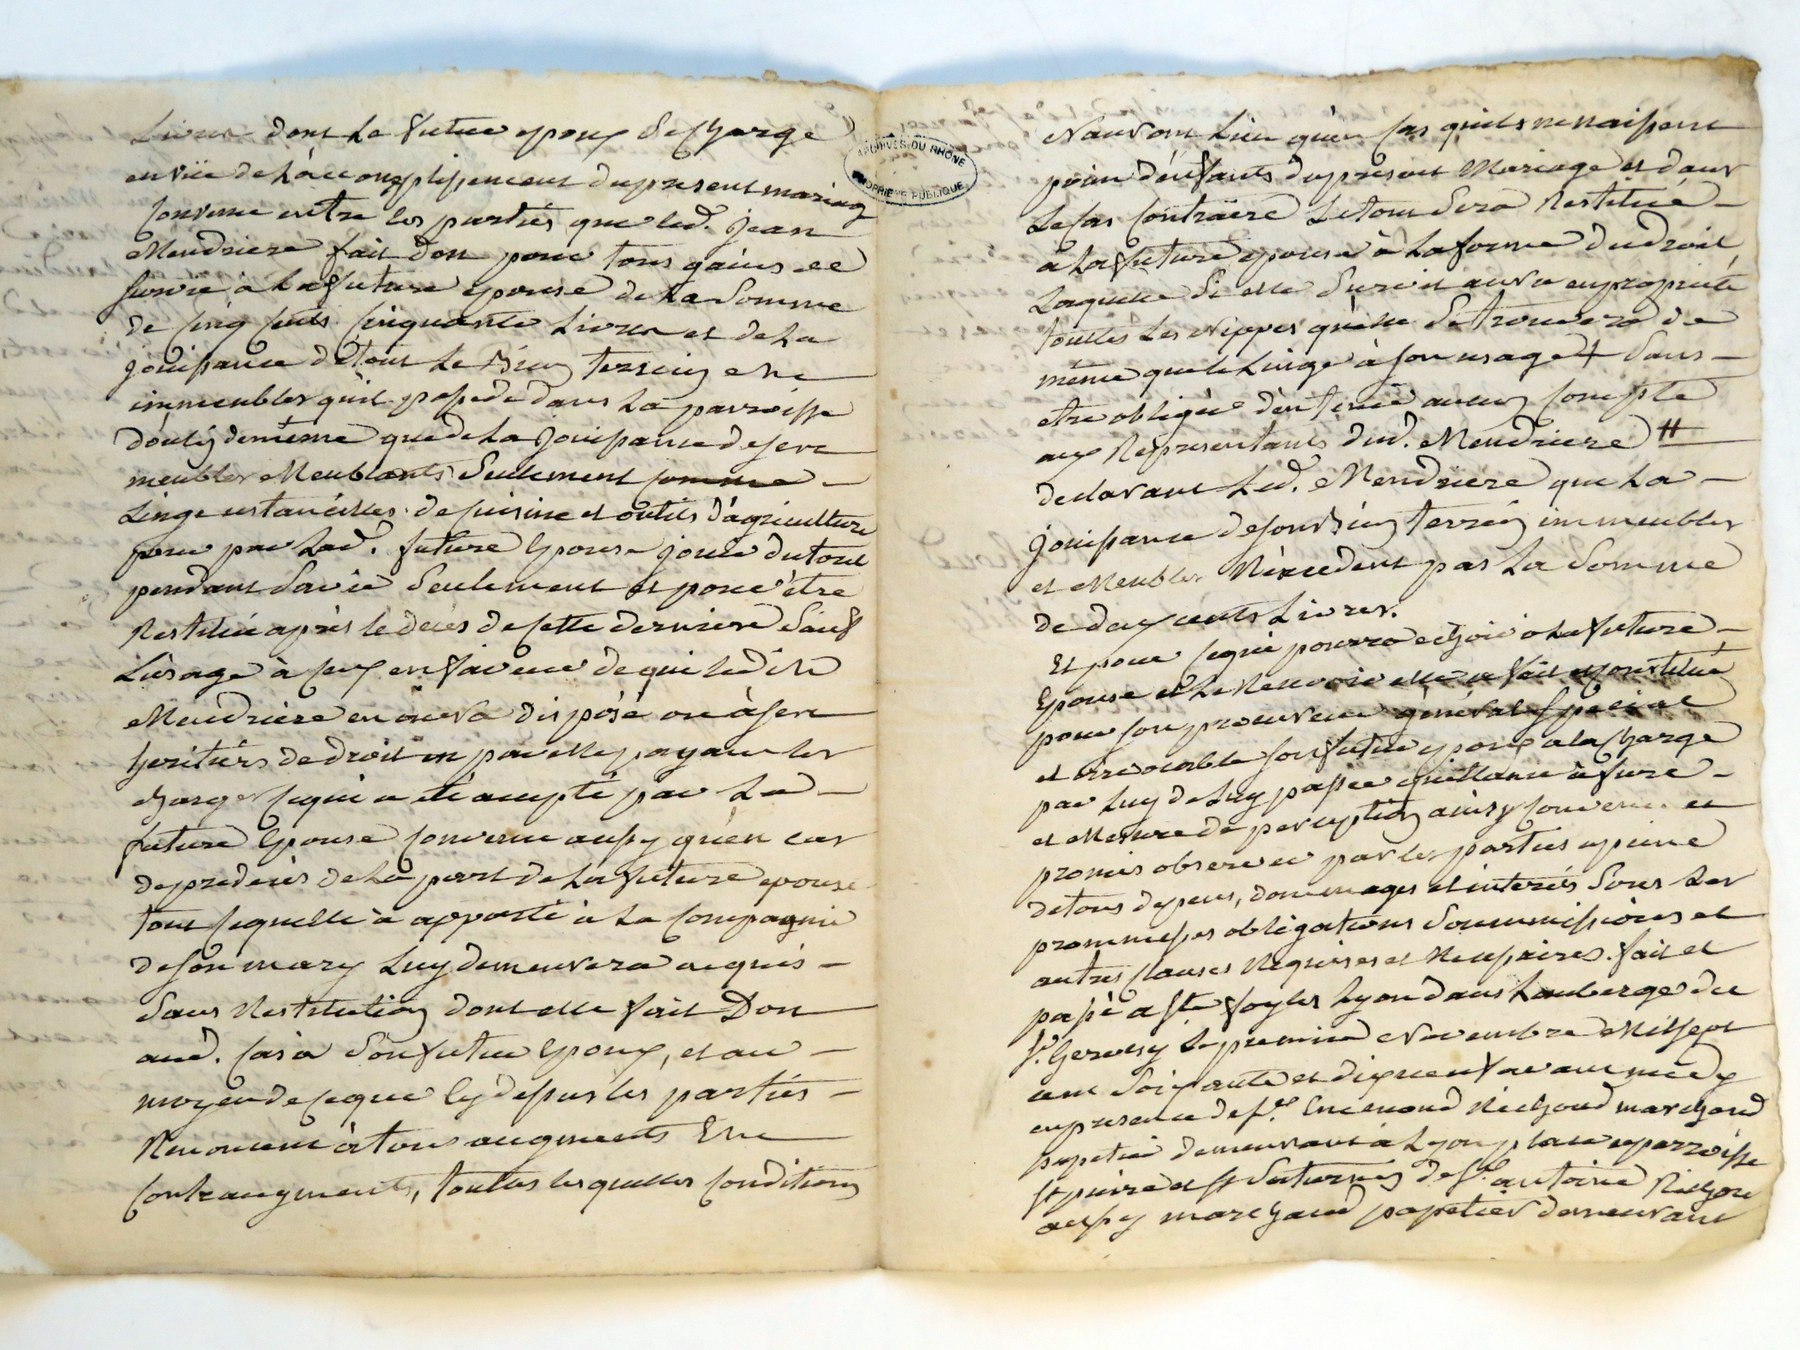 Livres dont le futur epoux se Charge
en vüe de L'accomplissement du present mariag
Convenu entre les parties que led. Jean
Mendriere fait Don pour tous gains de
survie à la future epouse de la Somme
de Cinq Cents Cinquante Livres et de la
Jouissance de tout le Bien terrein et
immeubles qu'il possede dans la parroisse
de même que de la Jouissance de ses
meubles Meublants Seulement comme
Linge ustancilles de Cuisine et outils d'agriculture
pour par Lad. future Epouse jouir du tout
pendant Sa vie Seulement et pour être
Restitué après le décès de Cette derniere Sauf
L'usage à Ceux en faveur de qui ledit
Mendriere en aura disposé ou à ses
heritiers de droit en par elle payant les
charges Ce qui a eté accepté par La
future Epouse Convenu aussy qu'en cas
de predecés de La part de La future epouse
tout Ce quelle a apporté à La Compagnie
de son mary Luy demeurera acquis
Sans Restitution dont elle fait Don
aud. Cas a Son futur Epoux, et au
moyen de Ce que Cy dessus les parties
Renoncent à tous augments Et
Contraugments, toutes lesquelles Conditions
ARCHIVES DU RHÔNE
PROPRIÉTÉ PUBLIQUE
N'auront Lieu qu'en Cas qu'ils ne naissent
point d'enfants du present Mariage et dans
Le Cas Contraire Le tout Sera Restitué
à La future epouse à La forme du droit
Laquelle Si elle Survit aura en propriété
toutes Les Nippes qu'elle Se trouvera de
même que le Linge à Son usage + Sans
etre obligée d'en tenir aucun Compte
aux Representants dud. Mendriere #
declarant Led. Mendriere que La
Jouissance de Son Bien terrein immeubles
et Meubles N'excedent pas La Somme
de deux cents Livres.
Et pour Ce qui pourra echoir à La future
Epouse et Le Recevoir elle a fait et Constitué
pour Son procureur général Special
et irrevocable Son futur epoux a la Charge
par Luy de Luy passer quittance à fure
et Mesure de perception ainsy Convenu et
promis observer par les parties a peine
de tous depens, dommages et interés Sous Les
prommesses obligations Soummissions et
autres Clauses Requises et Necessaires. fait et
passé a Ste foy les Lyon dans L'auberge du
Sr. Le premier Novembre Mil Sept
cent Soixante et dix neuf avant midy
en presence de Sr. Enemond Richoud marchand
papetier demeurant à Lyon place et parroisse
St pierre et St Saturnin de Sr. antoine Richou
aussy marchand papetier demeurant